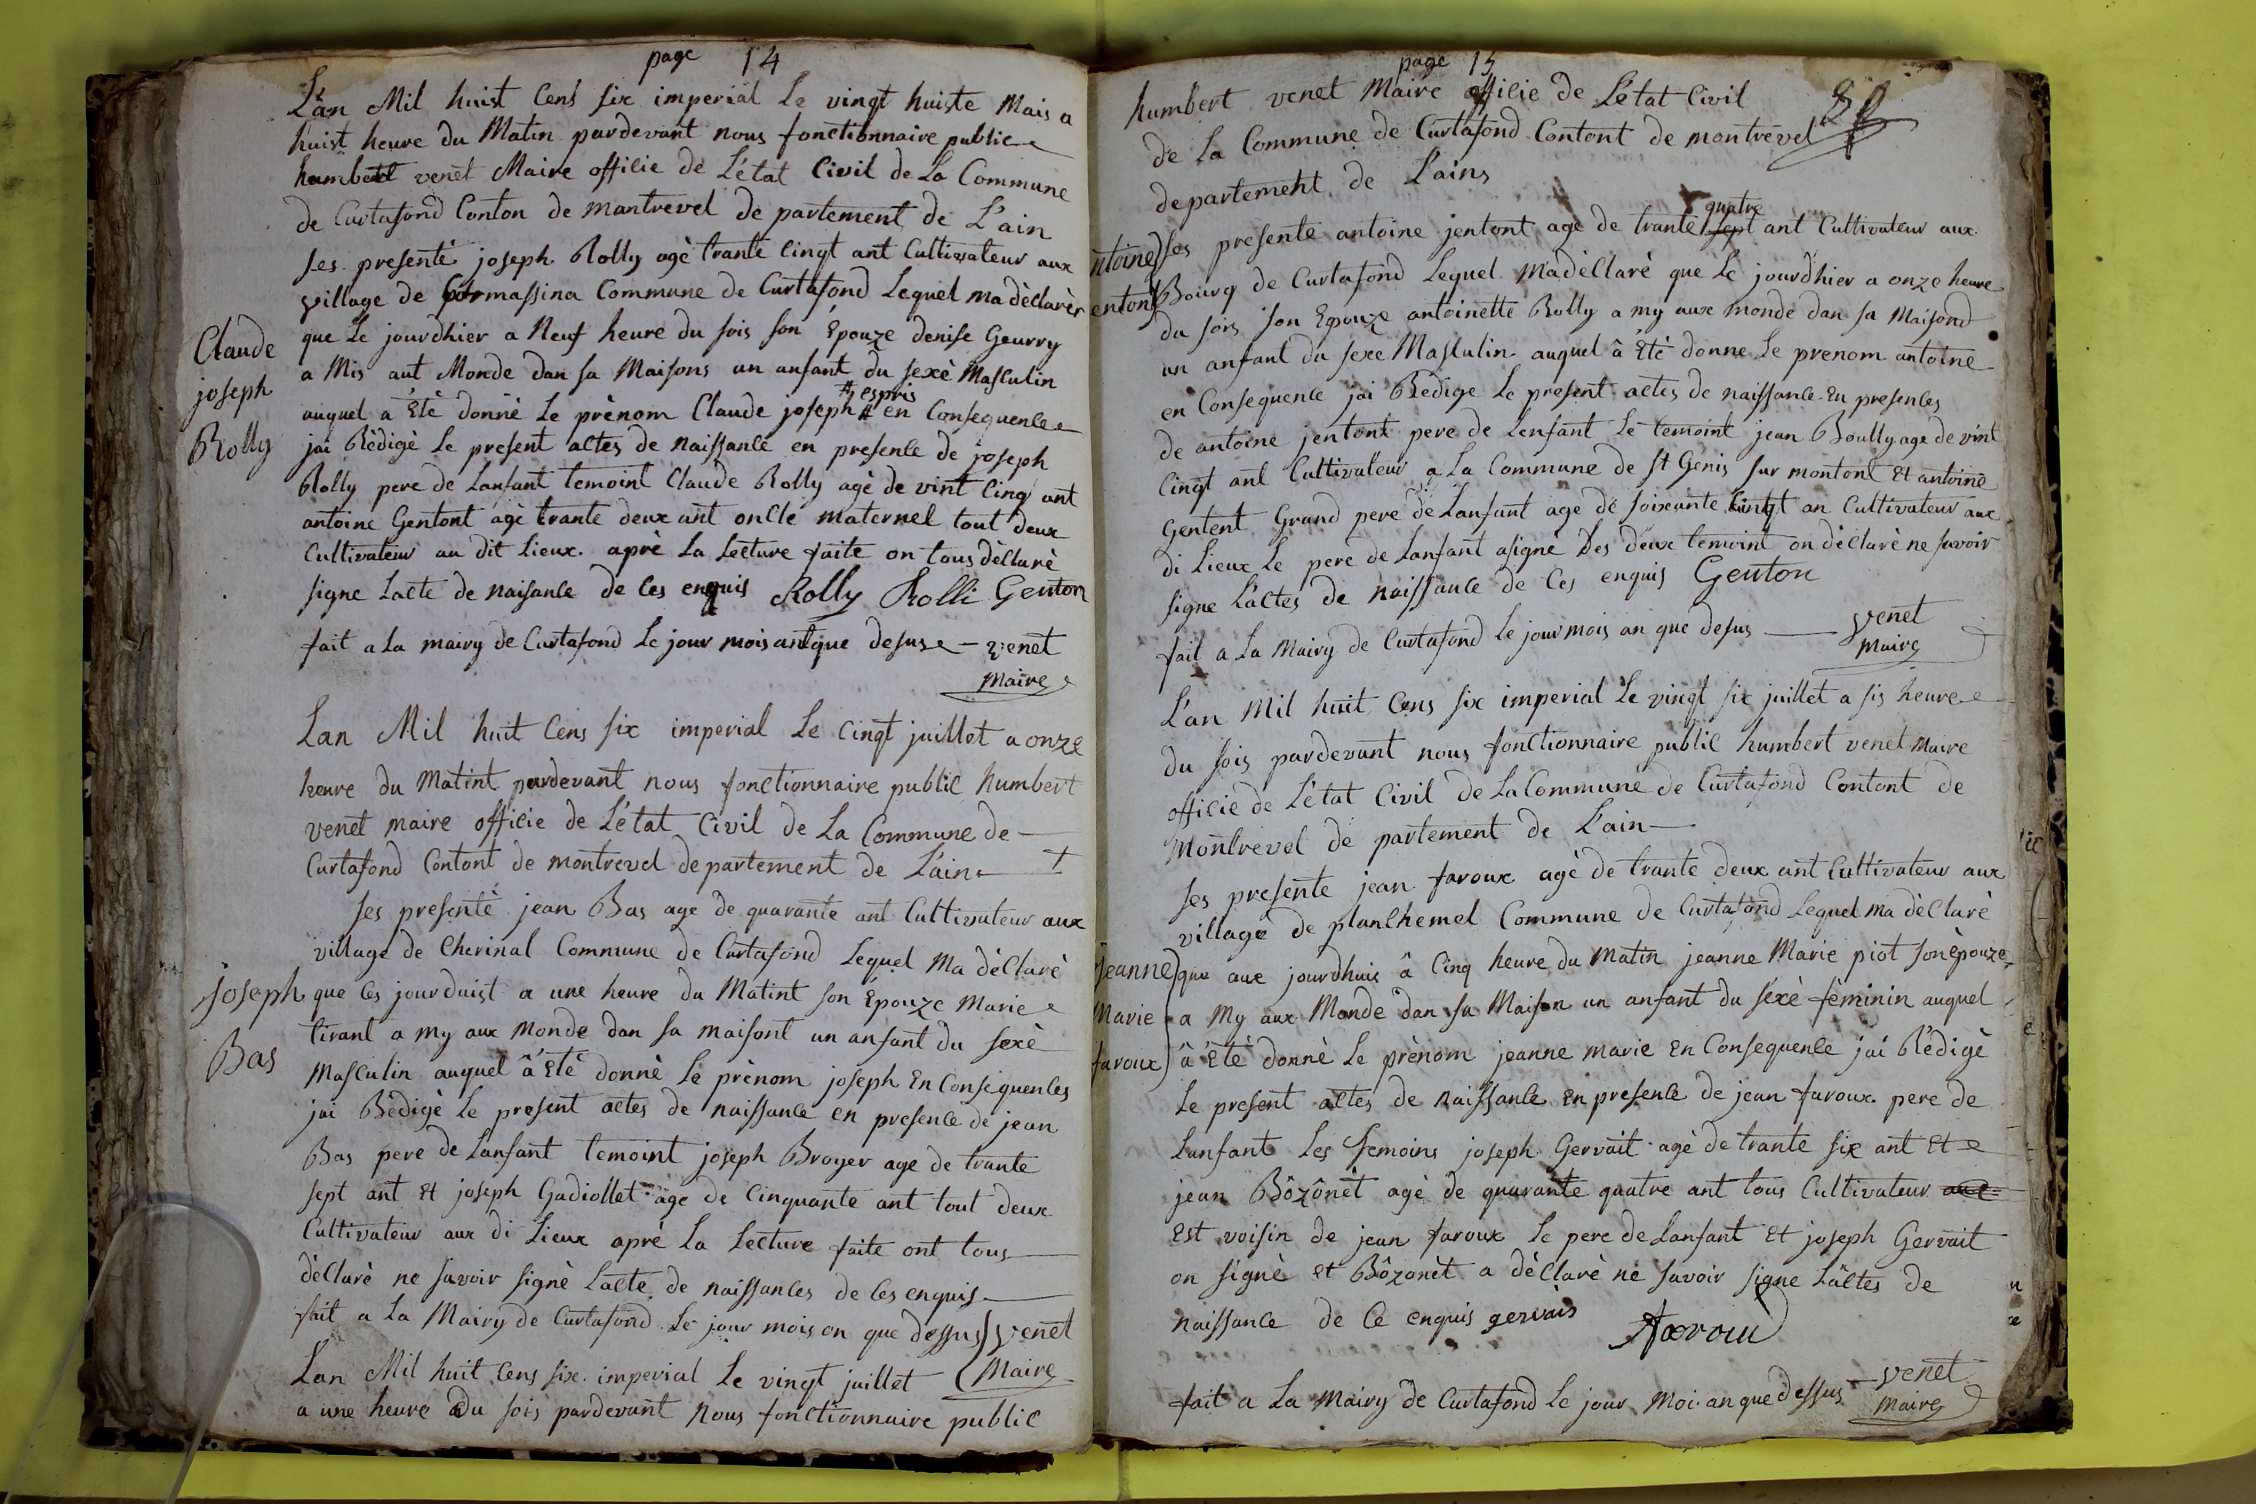 page 14
L'an Mil huist Cens six imperial Le vingt huiste Mais a
huist heure du Matin pardevant nous fonctionnaire public
humbert venet Maire officie de L'état Civil de La Commune
de Curtafond Conton de Montrevel de partement de L'ain
ses presenté joseph Rolly agè trante Cingt ant Cultivateur aux
village de Cormassina Commune de Curtafond Lequel ma dèclarèr
que Le jourdhier a Neuf heure du sois son Épouze denise Geurry
a Mis aut Monde dan sa Maisons un anfant du sexè Masculin
# espris
auquel a Été donnè Le prènom Claude joseph # en Consequence
jai Rèdigè Le present actes de naissance en presence de joseph
Rolly pere de Lanfant temoint Claude Rolly agè de vint Cinq ant
antoine Gentont agè trante deux ant oncle maternel tout deux
Cultivateur au dit Lieux. aprè La Lecture faite on tous dèclarè
signe Lacte de naisance de Ces enquis Rolly Rolli Genton
fait a La mairy de Curtafond Le jour mois ant que desus venet
Maire
Claude
joseph
Rolly
Lan Mil huit Cens six imperial Le Cingt juillet a onze
heure du Matint pardevant nous fonctionnaire public humbert
venet maire officie de L'état Civil de La Commune de
Curtafond Contont de montrevel departement de L'ain
ses presenté jean Bas age de quarante ant Cultivateur aux
village de Cherinal Commune de Curtafond Lequel Ma dèclarè
que Ces jourduist a une heure du Matint son Épouze Marie
tirant a my aux Monde dan sa maisont un anfant du sexè
Masculin auquel â Eté donnè Le prènom joseph En Consequences
jai Rèdigè Le present actes de naissance en presence de jean
Bas pere de Lanfant temoint joseph Broyer age de trante
sept ant Et joseph Gadiollet age de Cinquante ant tout deux
Cultivateur aux di Lieux aprè La Lecture faite ont tous
dèclarè ne savoir signè Lacte de naissances de Ces enquis
fait a La Mairy de Curtafond Le jour mois an que dessus venet
Maire
joseph
Bas
Lan Mil huit Cens six imperial Le vingt juillet
a une heure du sois pardevant Nous fonctionnaire public
page 15
humbert venet Maire officie de L'état Civil
de La Commune de Curtafond Contont de montrevel
departement de L'ains
quatre
ses presente antoine jentont age de trante sept ant Cultivateur aux
Bourg de Curtafond Lequel Ma dèclarè que Le jourdhier a onze heure
du sois son Epouze antoinette Rolly a my aux monde dan sa Maisond
un anfant du sexe Masculin auquel â Etè donne Le prenom antoine
en Consequence jai Rèdige Le present actes de naissance En presences
de antoine jentont pere de Lenfant Le temoint jean Boully age de vint
Cingt ant Cultivateur a La Commune de St Genis sur montont Et antoine
Gentent Grand pere de Lanfant age de soixante Cingt an Cultivateur aux
di Lieux Le pere de Lanfant asignè Des deux temoint on dèclarè ne savoir
signe L'actes de naissance de Ces enquis Genton
fait a La Mairy de Curtafond Le jour mois an que desus venet
Maire
ntoine
entont
L'an Mil huit Cens six imperial Le vingt six juillet a sis heure
du sois pardevant nous fonctionnaire public humbert venet Maire
officie de L'état Civil de La Commune de Curtafond Contont de
Montrevel de partement de L'ain
ses presente jean faroux agè de trante deux ant Cultivateur aux
village de planchemel Commune de Curtafond Lequel ma dèclarè
que aux jourdhuis â Cinq heure du Matin jeanne Marie piot son èpouze
a My aux Monde dan sa Maison un anfant du sèxè fèminin auquel
â Été donnè Le prènom jeanne marie En Consequence jai Rédigè
Le present actes de naissance En presence de jean faroux pere de
Lanfant Les temoins joseph Gervait agè de trante six ant Et
jean Bôzônèt agè de quarante quatre ant tous Cultivateur
Est voisin de jean faroux Le pere de Lanfant Et joseph Gervait
on signè et Bôzonèt a dèclarè ne savoir signe L'actes de
naissance de Ce enquis gervais Faroux
fait a La Mairy de Curtafond Le jour Moi an que dessus venet
Maire
jeanne
Marie
faroux